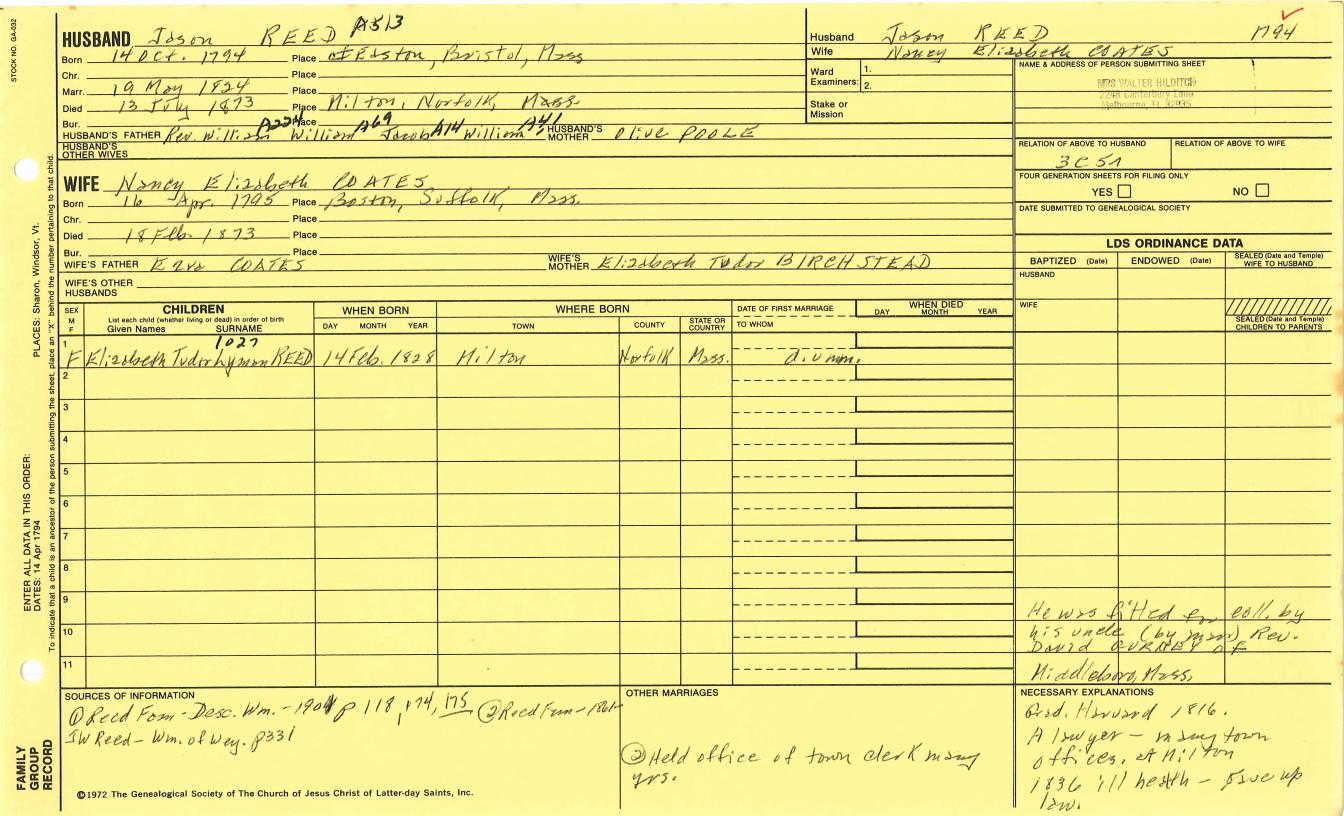 STOCK NO. GA-032
HUSBAND Jason REED A513
Born 14 Oct. 1794 Place of Easton, Bristol, Mass
Chr. Place
Marr. 19 May 1824 Place
Died 13 July 1873 Place Milton, Norfolk, Mass.
Bur. Place
HUSBAND'S FATHER Rev. William A224 William A69 Jacob A14 William A41 HUSBAND'S MOTHER Olive POOLE
HUSBAND'S OTHER WIVES
WIFE Nancy Elizabeth COATES
Born 16 Apr. 1795 Place Boston, Suffolk, Mass.
Chr. Place
Died 18 Feb. 1873 Place
Bur. Place
WIFE'S FATHER Ezra COATES WIFE'S MOTHER Elizabeth Tudor BIRCHSTEAD
WIFE'S OTHER HUSBANDS
Husband Jason REED 1794
Wife Nancy Elizabeth COATES
Ward Examiners: 1. 2.
Stake or Mission
NAME & ADDRESS OF PERSON SUBMITTING SHEET
MRS WALTER HILDITCH
2248 Canterbury Lane
Melbourne, FL 32935
RELATION OF ABOVE TO HUSBAND RELATION OF ABOVE TO WIFE
3C5
FOUR GENERATION SHEETS FOR FILING ONLY
YES NO
DATE SUBMITTED TO GENEALOGICAL SOCIETY
LDS ORDINANCE DATA
BAPTIZED (Date) ENDOWED (Date) SEALED (Date and Temple) WIFE TO HUSBAND
HUSBAND
WIFE
SEALED (Date and Temple) CHILDREN TO PARENTS
SEX M F
CHILDREN
List each child (whether living or dead) in order of birth
Given Names SURNAME
WHEN BORN
DAY MONTH YEAR
WHERE BORN
TOWN COUNTY STATE OR COUNTRY
DATE OF FIRST MARRIAGE
TO WHOM
WHEN DIED
DAY MONTH YEAR
1027
1 F Elizabeth Tudor Lyman REED 14 Feb. 1828 Milton Norfolk Mass. d. unm.
2
3
4
5
6
7
8
9
10
11
He was fitted for coll. by
his uncle (by marr) Rev.
David GURNEY of
Middleboro, Mass.
SOURCES OF INFORMATION
① Reed Fam - Desc. Wm. - 1901 p 118, 174, 175 ② Reed Fam - 1861
JW Reed - Wm. of Wey. p331
OTHER MARRIAGES
② Held office of town clerk many
yrs.
NECESSARY EXPLANATIONS
Grad. Harvard 1816.
A lawyer - many town
offices, at Milton
1836 ill health - gave up
law.
©1972 The Genealogical Society of The Church of Jesus Christ of Latter-day Saints, Inc.
FAMILY GROUP RECORD
ENTER ALL DATA IN THIS ORDER:
DATES: 14 Apr 1794 PLACES: Sharon, Windsor, Vt.
To indicate that a child is an ancestor of the person submitting the sheet, place an "X" behind the number pertaining to that child.